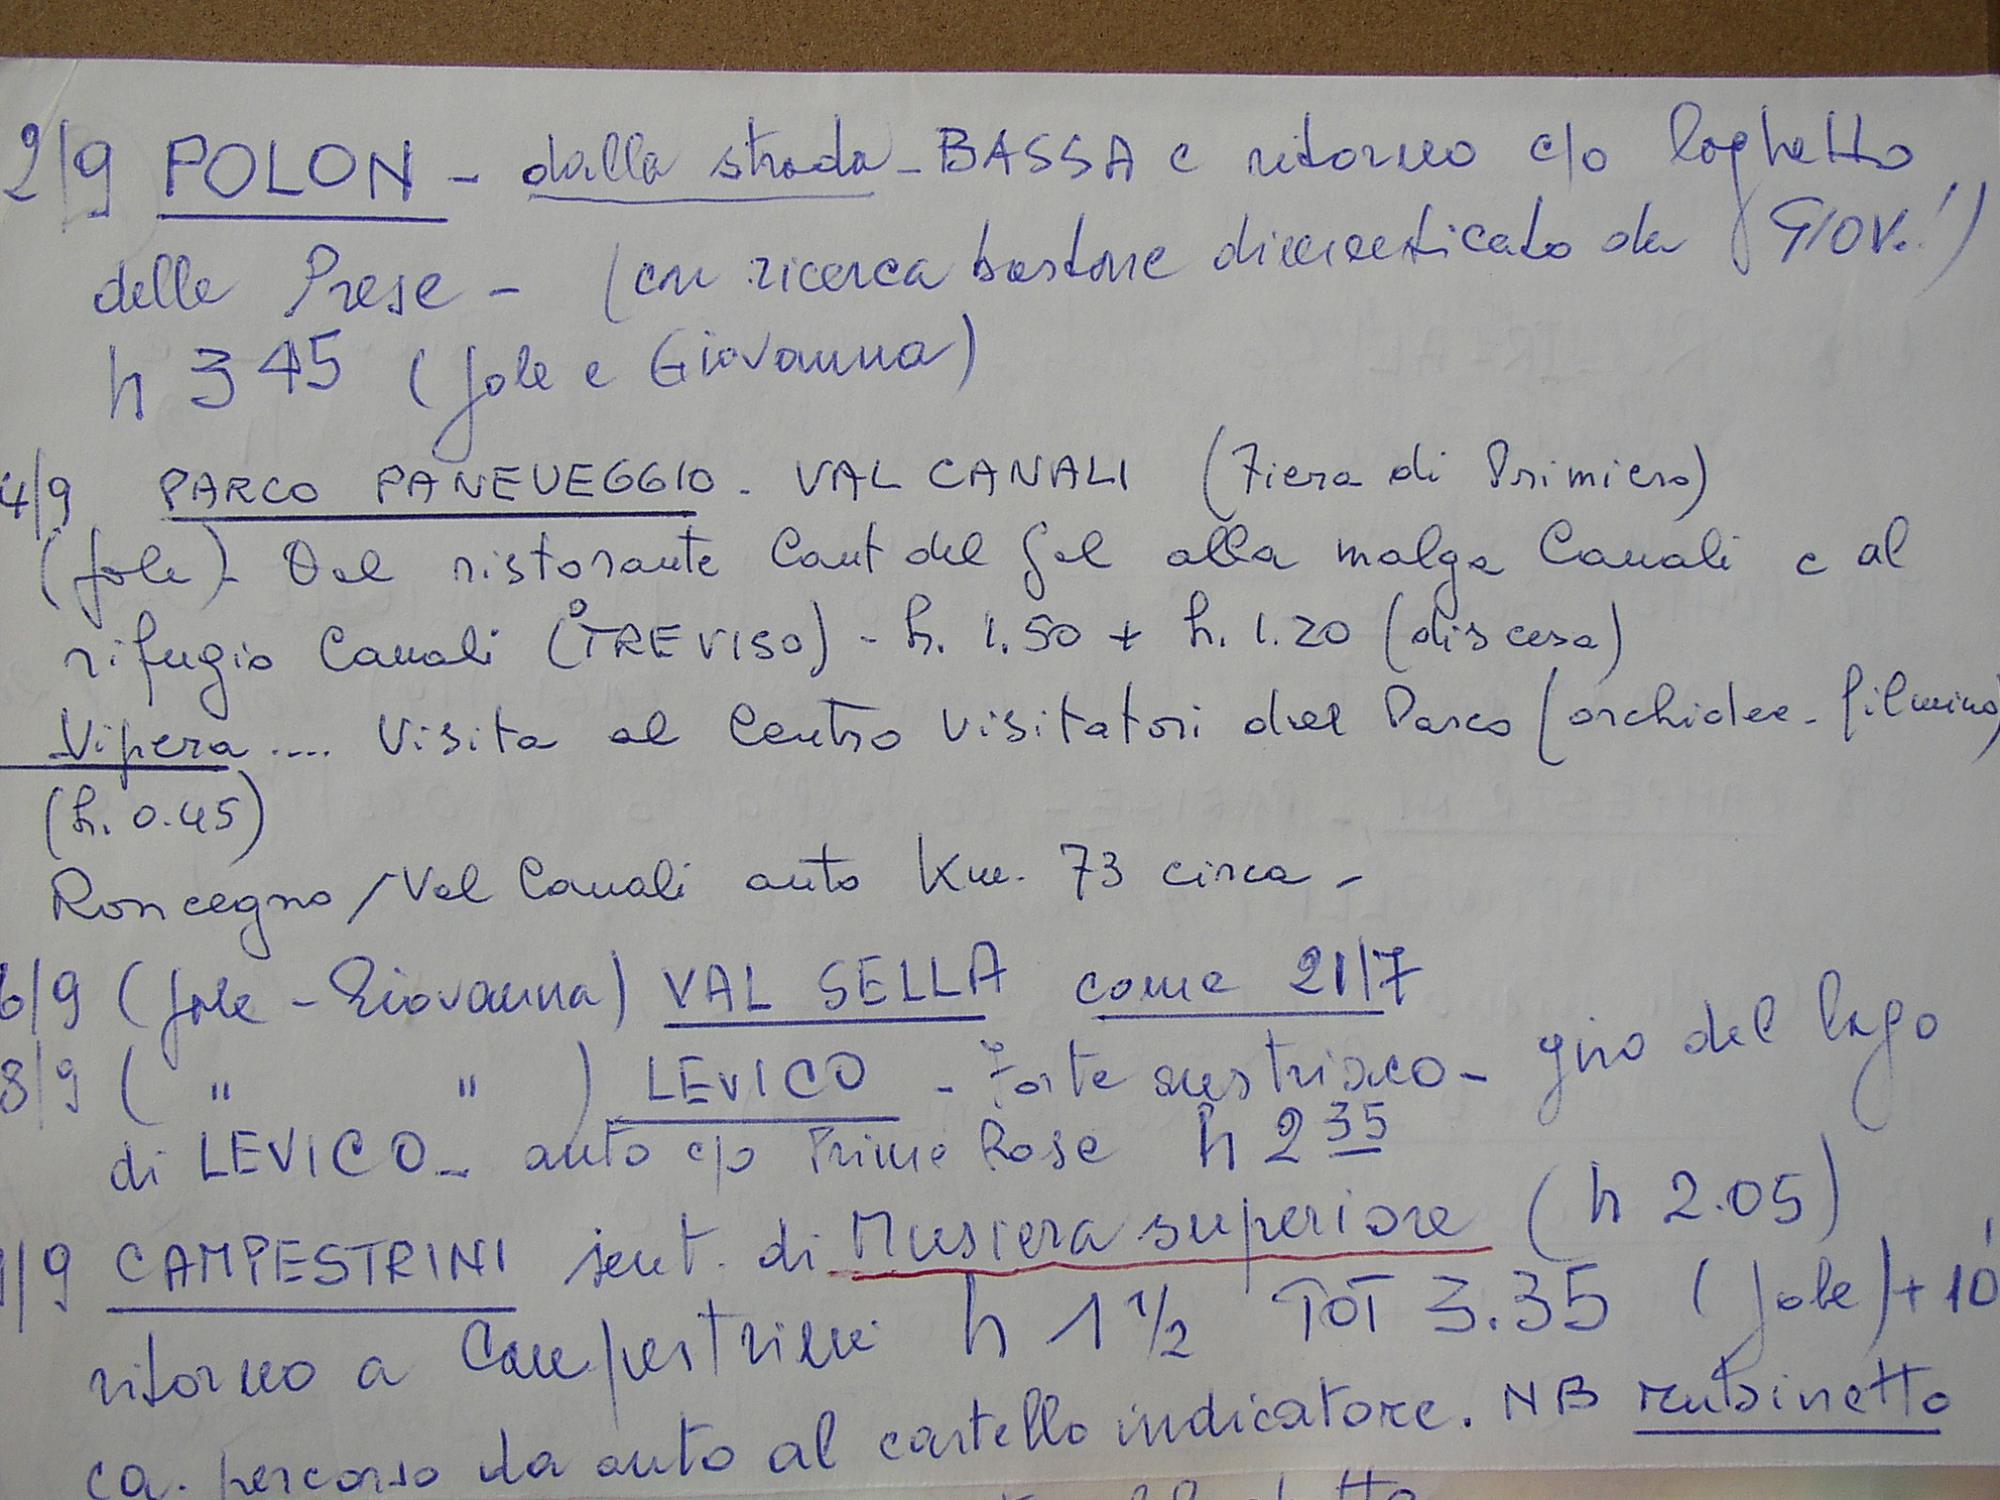 2/9 POLON - dalla strada - BASSA e ritorno c/o laghetto
delle Prese - (con ricerca bastone dimenticato da GIOV.!)
h 3 45 (Jole e Giovanna)
4/9 PARCO PANEVEGGIO - VAL CANALI (Fiera di Primiero)
(Jole) - Dal ristorante Cant del Gal alla malga Canali e al
rifugio Canali (TREVISO) - h. 1.50 + h. 1.20 (discesa)
Vipera .... Visita al Centro Visitatori del Parco (orchidee - filmino)
(h. 0.45)
Roncegno / Val Canali auto Km. 73 circa -
6/9 (Jole - Giovanna) VAL SELLA come 21/7
8/9 ( " " ) LEVICO - Forte austriaco - giro del lago
di LEVICO - auto c/o Prime Rose h 2 35
/9 CAMPESTRINI sent. di Musiera superiore (h 2.05)
ritorno a Campestrini h 1 1/2 TOT 3.35 (Jole) + 10'
ca. percorso da auto al cartello indicatore. NB rubinetto